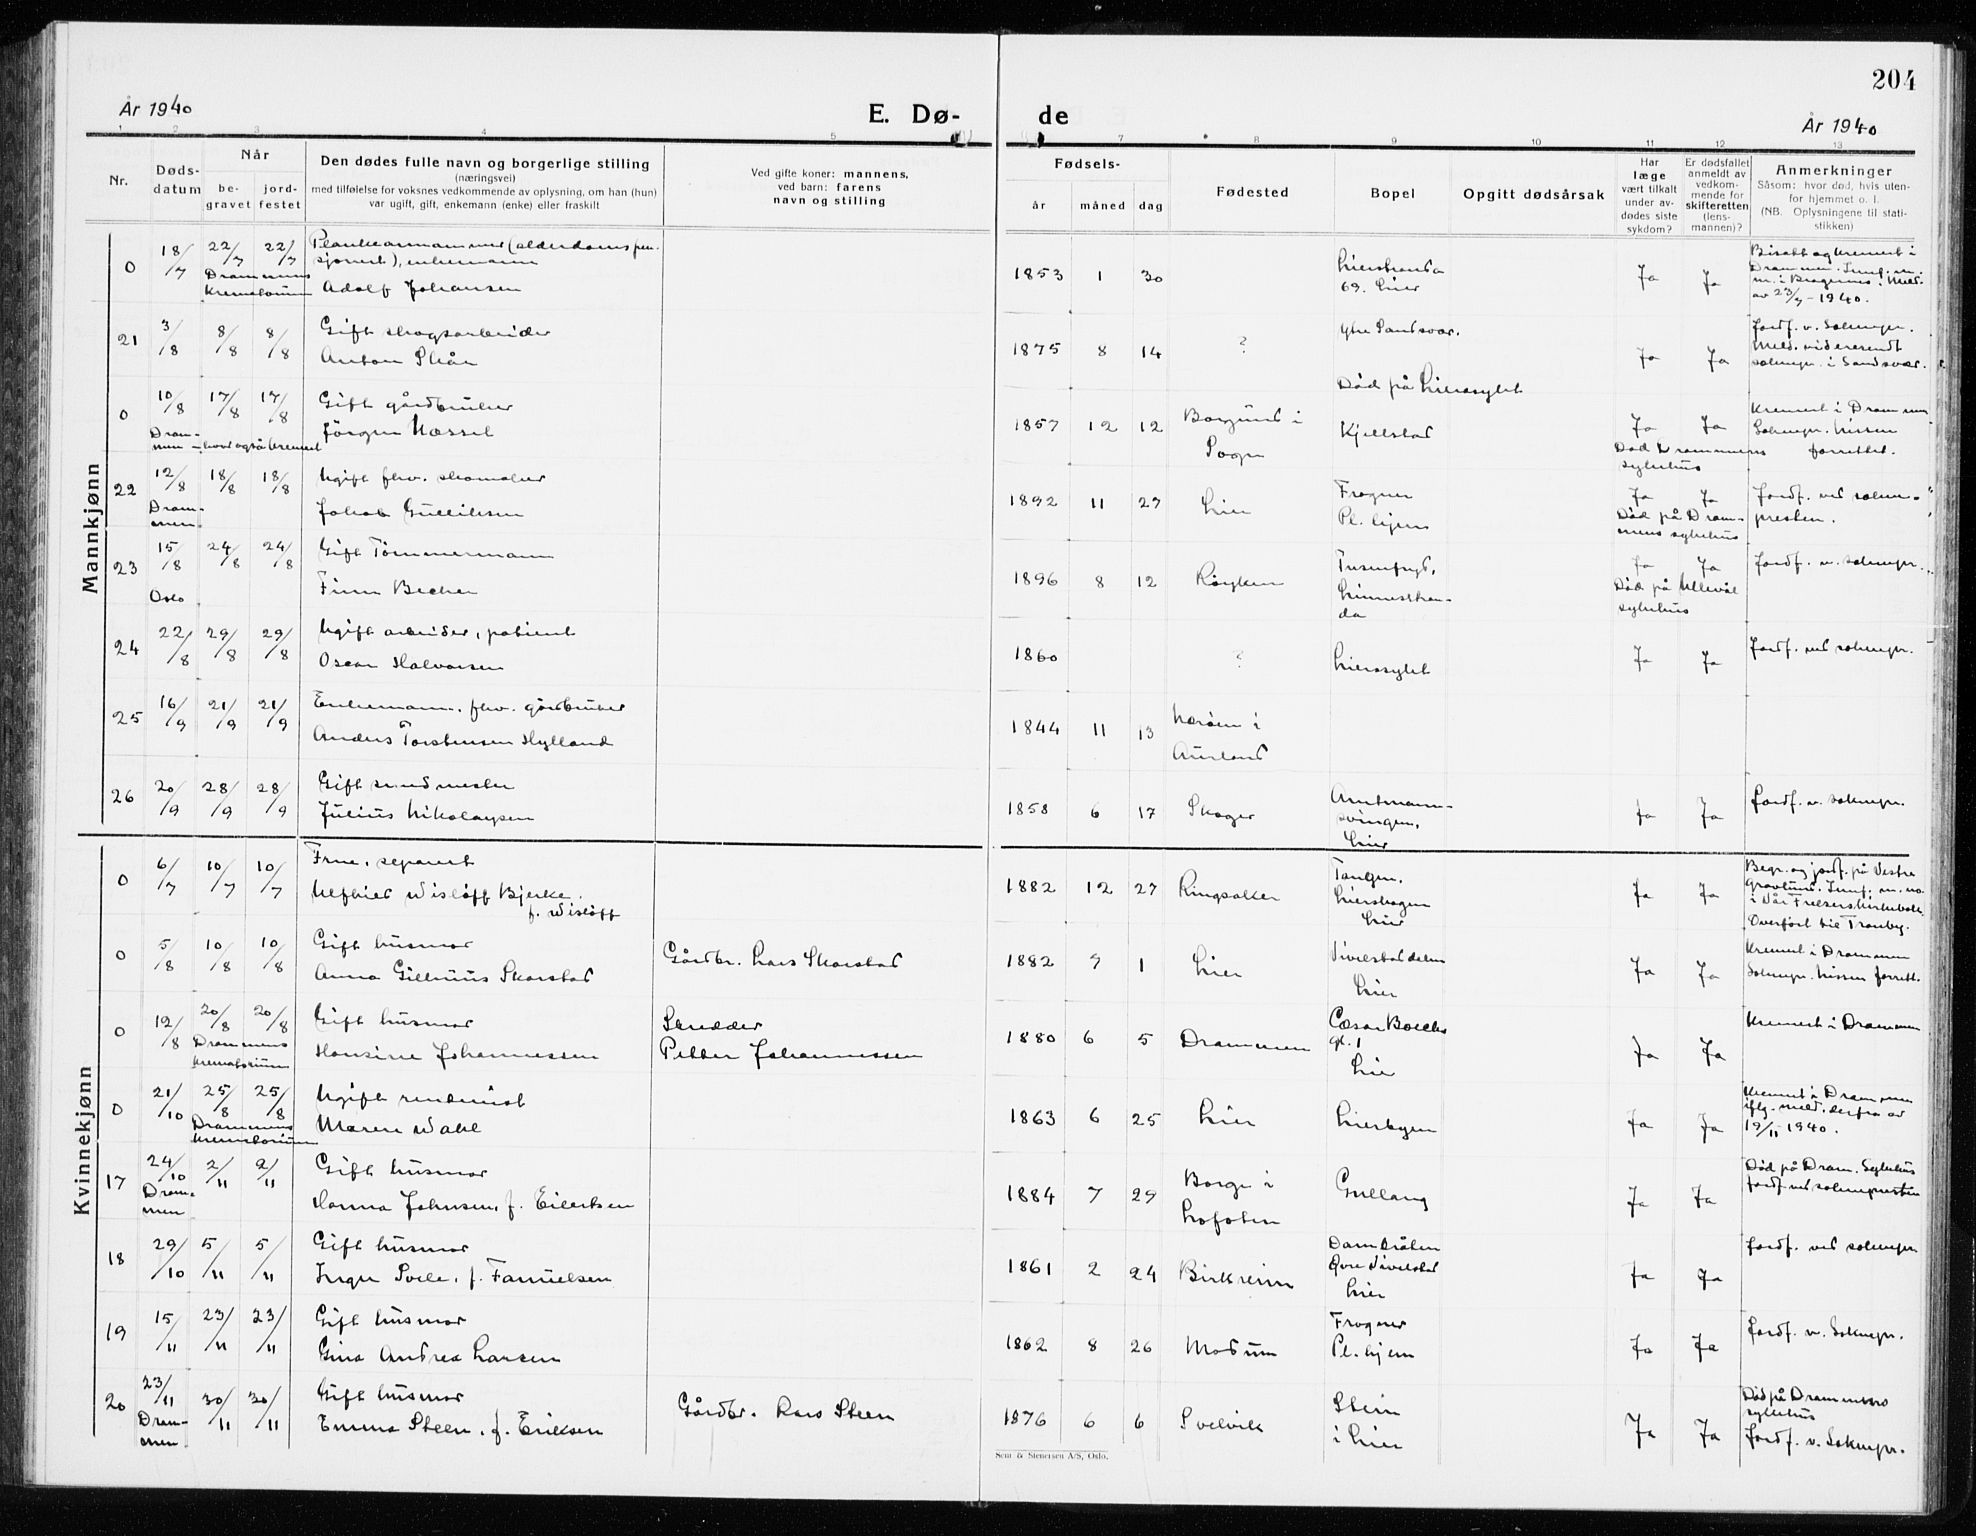 204
År 1940
E. Dø-
de
År 1940
1 2 3 4 5
7 8 9 10 11 12 13
Nr.
Døds-
datum
Når
be-
gravet
jord-
festet
Den dødes fulle navn og borgerlige stilling
(næringsvei)
med tilføielse for voksnes vedkommende av oplysning, om han (hun)
var ugift, gift, enkemann (enke) eller fraskilt
Ved gifte koner: mannens,
ved barn: farens
navn og stilling
Fødsels-
år måned dag
Fødested
Bopel
Opgitt dødsårsak
Har
læge
vært tilkalt
under av-
dødes siste
sykdom?
Er dødsfallet
anmeldt av
vedkom-
mende for
skifteretten
(lens-
mannen)?
Anmerkninger
Såsom: hvor død, hvis uten-
for hjemmet o. l.
(NB. Oplysningene til stati-
stikken)
Mannkjønn
0 18/7 22/7 22/7
Drammens
krematorium
(alderdomspen-
sjonert), enkemann
Adolf Johansen
1853 1 30
Lierstranda
69. Lier
Ja Ja
Bisatt og kremert i
Drammen.
m. i Bragernes. Meld.
av 23/7 - 1940.
21 3/8 8/8 8/8
Gift skogsarbeider
Anton Skår
1875 8 14
?
Ytre Sandsvær.
Død på Lierasylet
Ja Ja
Jordf. v. Soknepr.
Meld. videresendt
soknepr. i Sandsvær.
0 10/8 17/8 17/8
Dram-
men - hvor også kremert
Gift gårdbruker
Jörgen Hæssel
1857 12 12
Borgund i
Sogn
Kjellstad
Ja Ja
Død Drammens
sykehus
Kremert i Drammen
Soknepr. Nissen
forrettet.
22 12/8 18/8 18/8
Dram-
men
Ugift fhv. skomaker
Jakob Gulliksen
1892 11 27
Lier
Frogner
Pl. hjem
Ja Ja
Død på Dram-
mens sykehus
Jordf. ved sokne-
presten.
23 15/8 24/8 24/8
Oslo
Gift Tømmermann
Finn Becher
1896 8 12
Røyken
Tusenfryd,
Linnesstran-
da
Ja Ja
Død på Ullevål
sykehus
Jordf. v. soknepr.
24 22/8 29/8 29/8
Ugift arbeider, patient
Oscar Halvorsen
1860
?
Lierasylet
Ja Ja
Jordf. ved soknepr.
25 16/9 21/9 21/9
Enkemann, fhv. gårdbruker
Anders Torstensen Hylland
1844 11 13
Nærøen i
Aurland
26 20/9 28/9 28/9
Gift smedmester
Julius Nikolaysen
1858 6 17
Skoger
Amtmann-
svingen,
Lier
Ja Ja
Jordf. v. soknepr.
Kvinnekjønn
0 6/7 10/7 10/7
Frue, separert
Alfhild Wisløff Bjerke.
f. Wisløff
1882 12 27
Ringsaker
Tangen,
Lierskogen
Lier
Ja Ja
Begr. og jordf. på Vestre
Gravlund.
i Vår Frelsers kirkebok.
Overført til Tranby.
0 5/8 10/8 10/8
Gift husmor
Anna Gilhuus Skorstad
Gårdbr. Lars Skorstad
1882 9 1
Lier
Vivelstaddelen
Lier
Ja Ja
Kremert i Drammen
Soknepr. Nissen forrett.
0 12/8 20/8 20/8
Drammens
krematorium
Gift husmor
Hansine Johannessen
Skredder
Petter Johannessen
1880 6 5
Drammen
Cæsar Boecks
gt. 1
Lier
Ja Ja
Kremert i Drammen
0 21/10 25/8 25/8
Drammens
krematorium
Ugift rentenist
Maren Wahl
1863 6 25
Lier
Lierbyen
Ja Ja
Kremert i Drammen
iflg. meld. derfra av
19/11 1940.
17 24/10 2/11 2/11
Dram-
men
Gift husmor
Hanna Johnsen, f. Eilertsen
1884 7 29
Borge i
Lofoten
Gullaug
Ja Ja
Død på Dram. Sykehus
Jordf. ved soknepresten
18 29/10 5/11 5/11
Gift husmor
Inger Svele, f. Fanuelsen
1861 2 24
Birkreim
Damtråkka
Øvre Vivelstad
Lier
Ja Ja
Jordf. ved soknepr
19 15/11 23/11 23/11
Gift husmor
Gina Andrea Larsen
1862 8 26
Modum
Frogner
Pl. hjem
Ja Ja
Jordf. v. Soknepr.
20 23/11 30/11 30/11
Dram-
men
Gift husmor
Emma Steen, f. Eriksen
Gårdbr. Lars Steen
1876 6 6
Svelvik
Steen
i Lier
Ja Ja
Død på Drammens
sykehus
Jordf. v. Soknepr.
Sem & Stenersen A/S, Oslo.